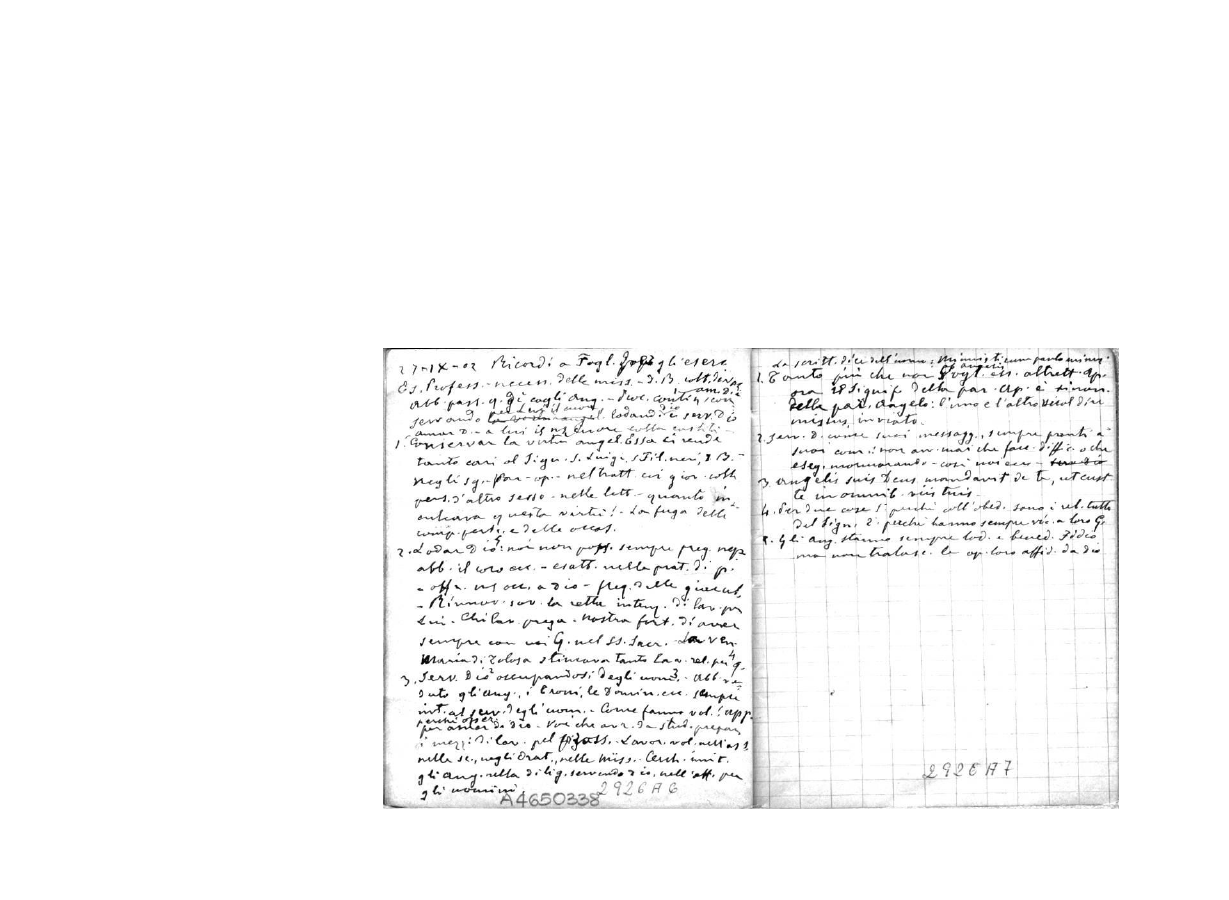 27-IX-02 Ricordi a Fogl. dopo gli eserc
Es. Profess. - necess. delle miss. - D. B.
abb. pass. q. dì cogli Ang. - Dov. contin. con
am. Dio
servendo lodando Dio serv. Dio
amar D. - a lui is
1. Conservar la virtù angel. Essa ci rende
tanto cari al Sign. S. Luigi, s Fil. neri, D B. -
negli sg. - par. - op. - nel tratt coi giov. coll
pers. d'altro sesso - nelle lett. - quanto in-
culcava questa virtù! - La fuga delle
comp. peric. e delle occas.
2. Lodar Dio: noi non poss. sempre preg. nep
abb. il coro ecc. - esatt. nelle prat. di p.
- off. a Dio - freq. delle giacul.
- Rinnov. sov. la retta intenz. di lav. per
Lui. - Chi lav. prega. - nostra fort. di aver
sempre con noi G. nel SS. Sacr. - La Ven.
Maria di Tolosa stimava tanto la v. rel. per q.
3. Serv. Dio occupandosi degli uom. - Abb. ve-
duto gli ang., i Troni, le Domin. ecc. sempre
int. al serv. degli uom. - Come fanno vol.! app.
per amor di Dio - Voi che avr. da stud. prepar.
i mezzi di lav. pel pross. - Lavor. vol. nell'ass.
nelle sc., negli Orat., nelle Miss. - Cerch. imit.
gli ang. nella dilig. servendo Dio, nell'aff. per
gli uomini.
A4650338
2926 A6
La scritt. dice dell'uomo: Minuisti eum paulo minus
ab angelis
1. Tanto più che voi Fogl. ess. altrett. Ap.
ora il signif. della par. Ap. è sinon.
della par. Angelo: l'uno e l'altro vuol dire
missus, inviato.
2. Serv. D. come suoi messagg., sempre pronti a
suoi com.: non avv. mai che facc. diffic. o che
eseg. mormorando - così noi ecc -
3. Angelis suis Deus mandavit de te, ut cust.
te in omnib. viis tuis.
4. Per due cose 1. perché coll'obbed. sono i rel. tutti
del Sign., 2. perché hanno sempre vic. a loro G.
5. Gli ang. stanno sempre lod. e bened. Iddio
ma non tralasc. le op. loro affid. da Dio
2926 A7